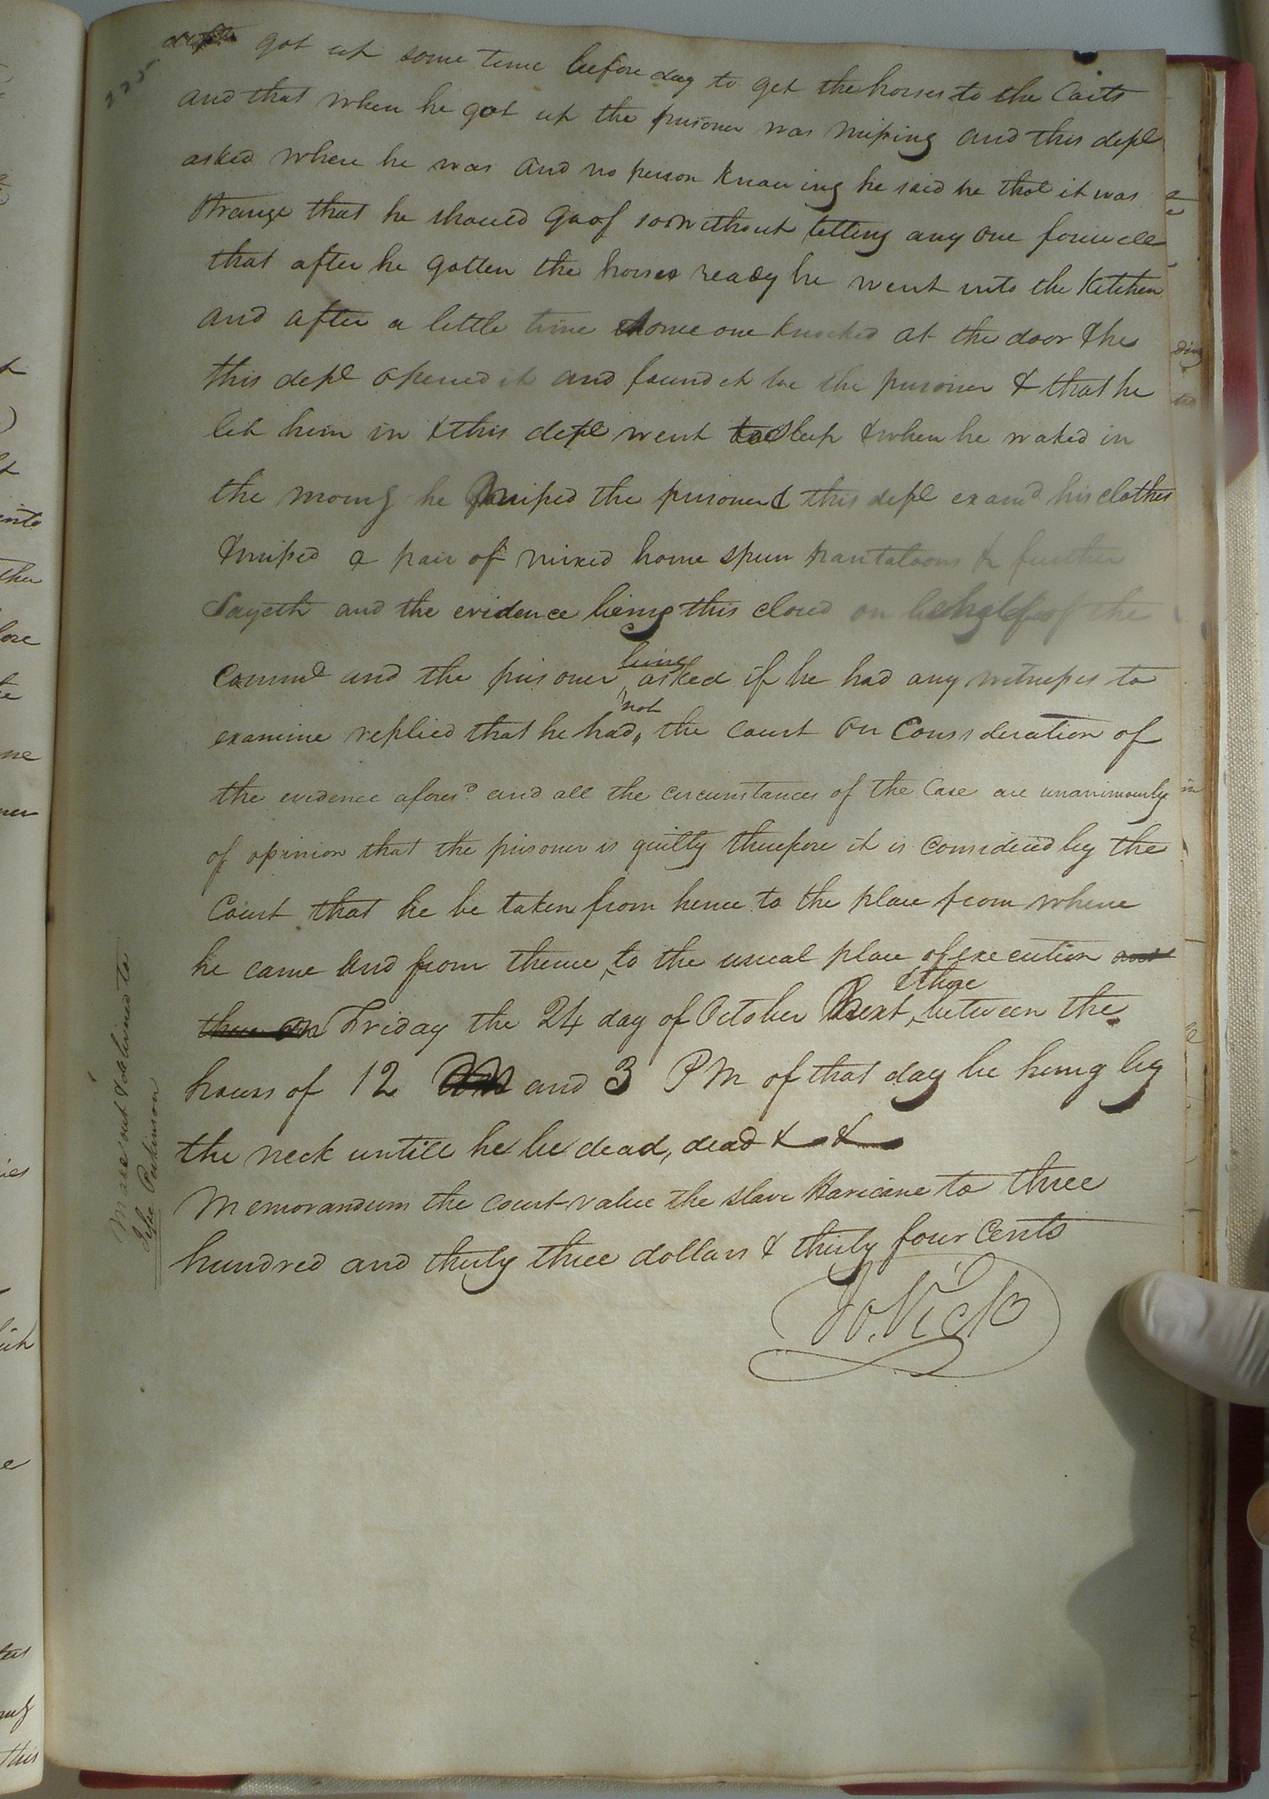 got up some time before day to get the horses to the Carts
and that when he got up the prisoner was missing and this dept
asked where he was and no person knowing he said he that it was
strange that he should go of so without letting any one
that after he gotten the horses ready he went into the Kitchen
and after a little time some one knocked at the door & he
this dept opened it and found it be the prisoner & that he
let him in & this dept went to sleep & when he waked in
the morng he missed the prisoner & this dept examd his clothes
& missed a pair of mixed home spun pantaloons & further
Sayeth and the evidence being this closed on behalf of the
Commd and the prisoner being asked if he had any witnesses to
examine replied that he had not, the court on Consideration of
the evidence aforesd and all the circumstances of the Case are unanimously
of opinion that the prisoner is guilty therefore it is considered by the
Court that he be taken from hence to the place from where
he came and from thence to the usual place of execution and
then on Friday the 24 day of October next, & there between the
hours of 12 and 3 PM of that day be hung by
the neck untill he be dead, dead & &
Memorandum the court value the slave Haricane to three
hundred and thirty three dollars & thirty four Cents
Jo. Vick
Made out & delivered to
Parkinson